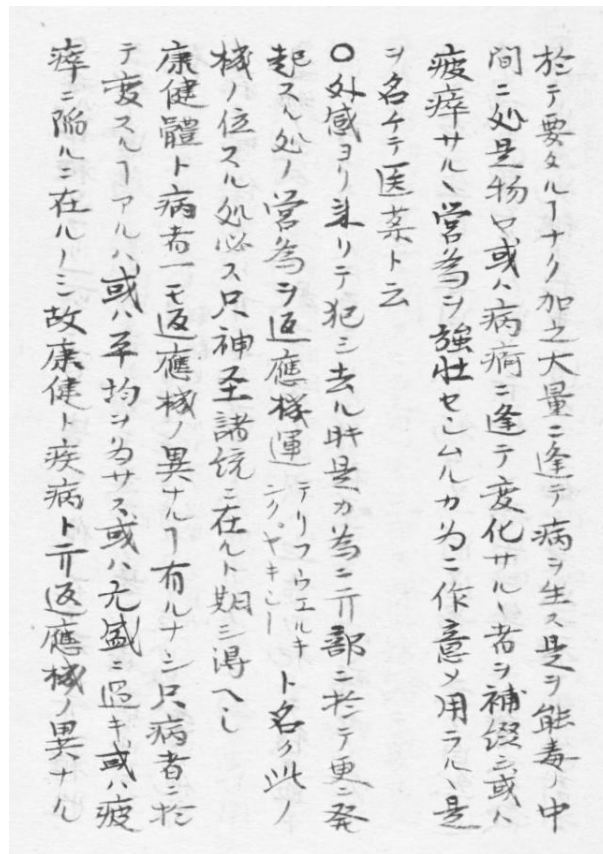 於テ要タルヿナク加之大量ニ逢テ病ヲ生ス是ヲ能毒ノ中
間ニ処是物ヤ或ハ病痾ニ逢テ変化サル丶者ヲ補綴シ或ハ
疲瘁サル丶営為ヲ強壮セシムルカ為ニ作意メ用ラル丶是
ヲ名ケテ医薬ト云
〇外感ヨリ来リテ犯シ去ル時是カ為ニ亓部ニ於テ更ニ発
起スル処ノ営為ヲ返應機運テリフウエルキニクヤキシートト名ク此ノ
機ノ位スル処必ス只神至諸統ニ在ルト期シ得ヘし
康健體ト病者一モ返應機ノ異ナルヿ有ルナシ只病者ニ於
テ変スルヿアルハ或ハ平均ヲ為サス或ハ亢盛ニ過キ或ハ疲
瘁ニ陥ルニ在ルノミ故康健ト疾病ト亓返應機ノ異ナル